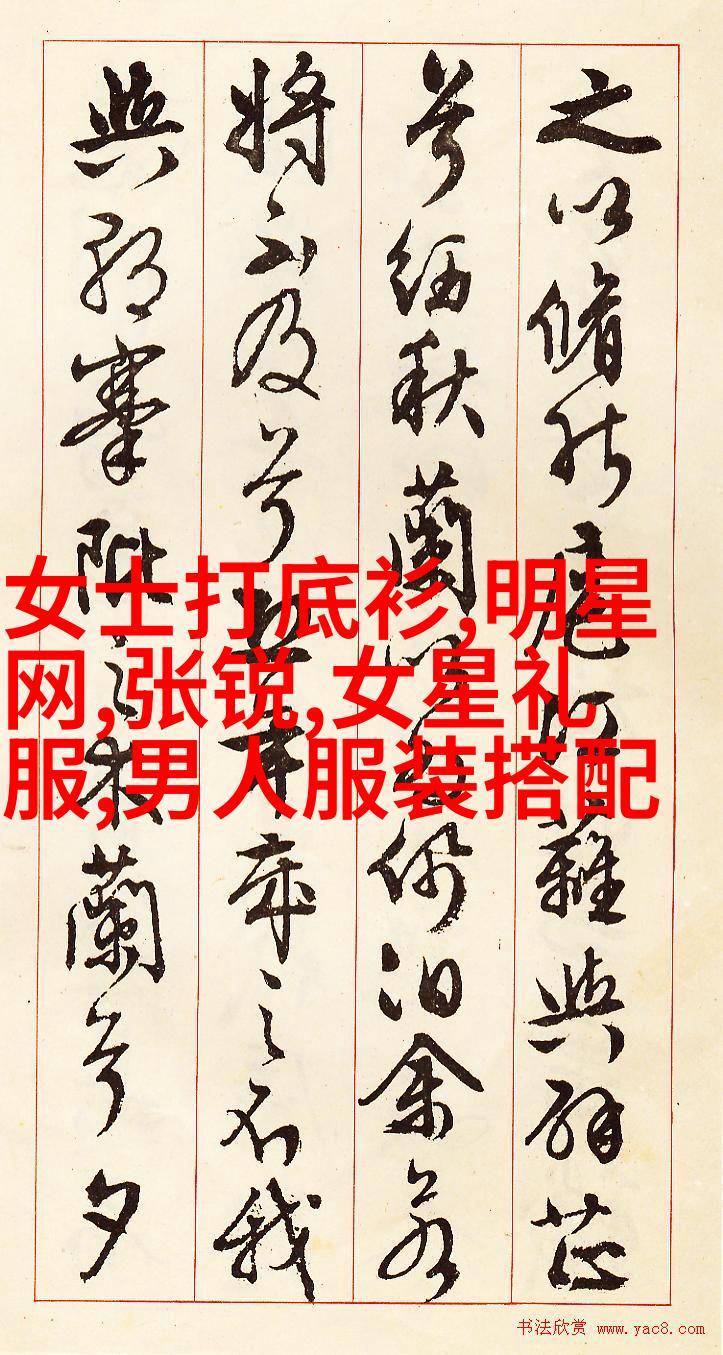 之以脩能扈江蘺與辟芷
兮紉秋蘭以為佩汩余若
將不及兮恐年歲之不我
與朝搴阰之木蘭兮夕
女士打底衫,明星
网,张锐,女星礼
服,男人服装搭配
书法欣赏 www.yac8.com